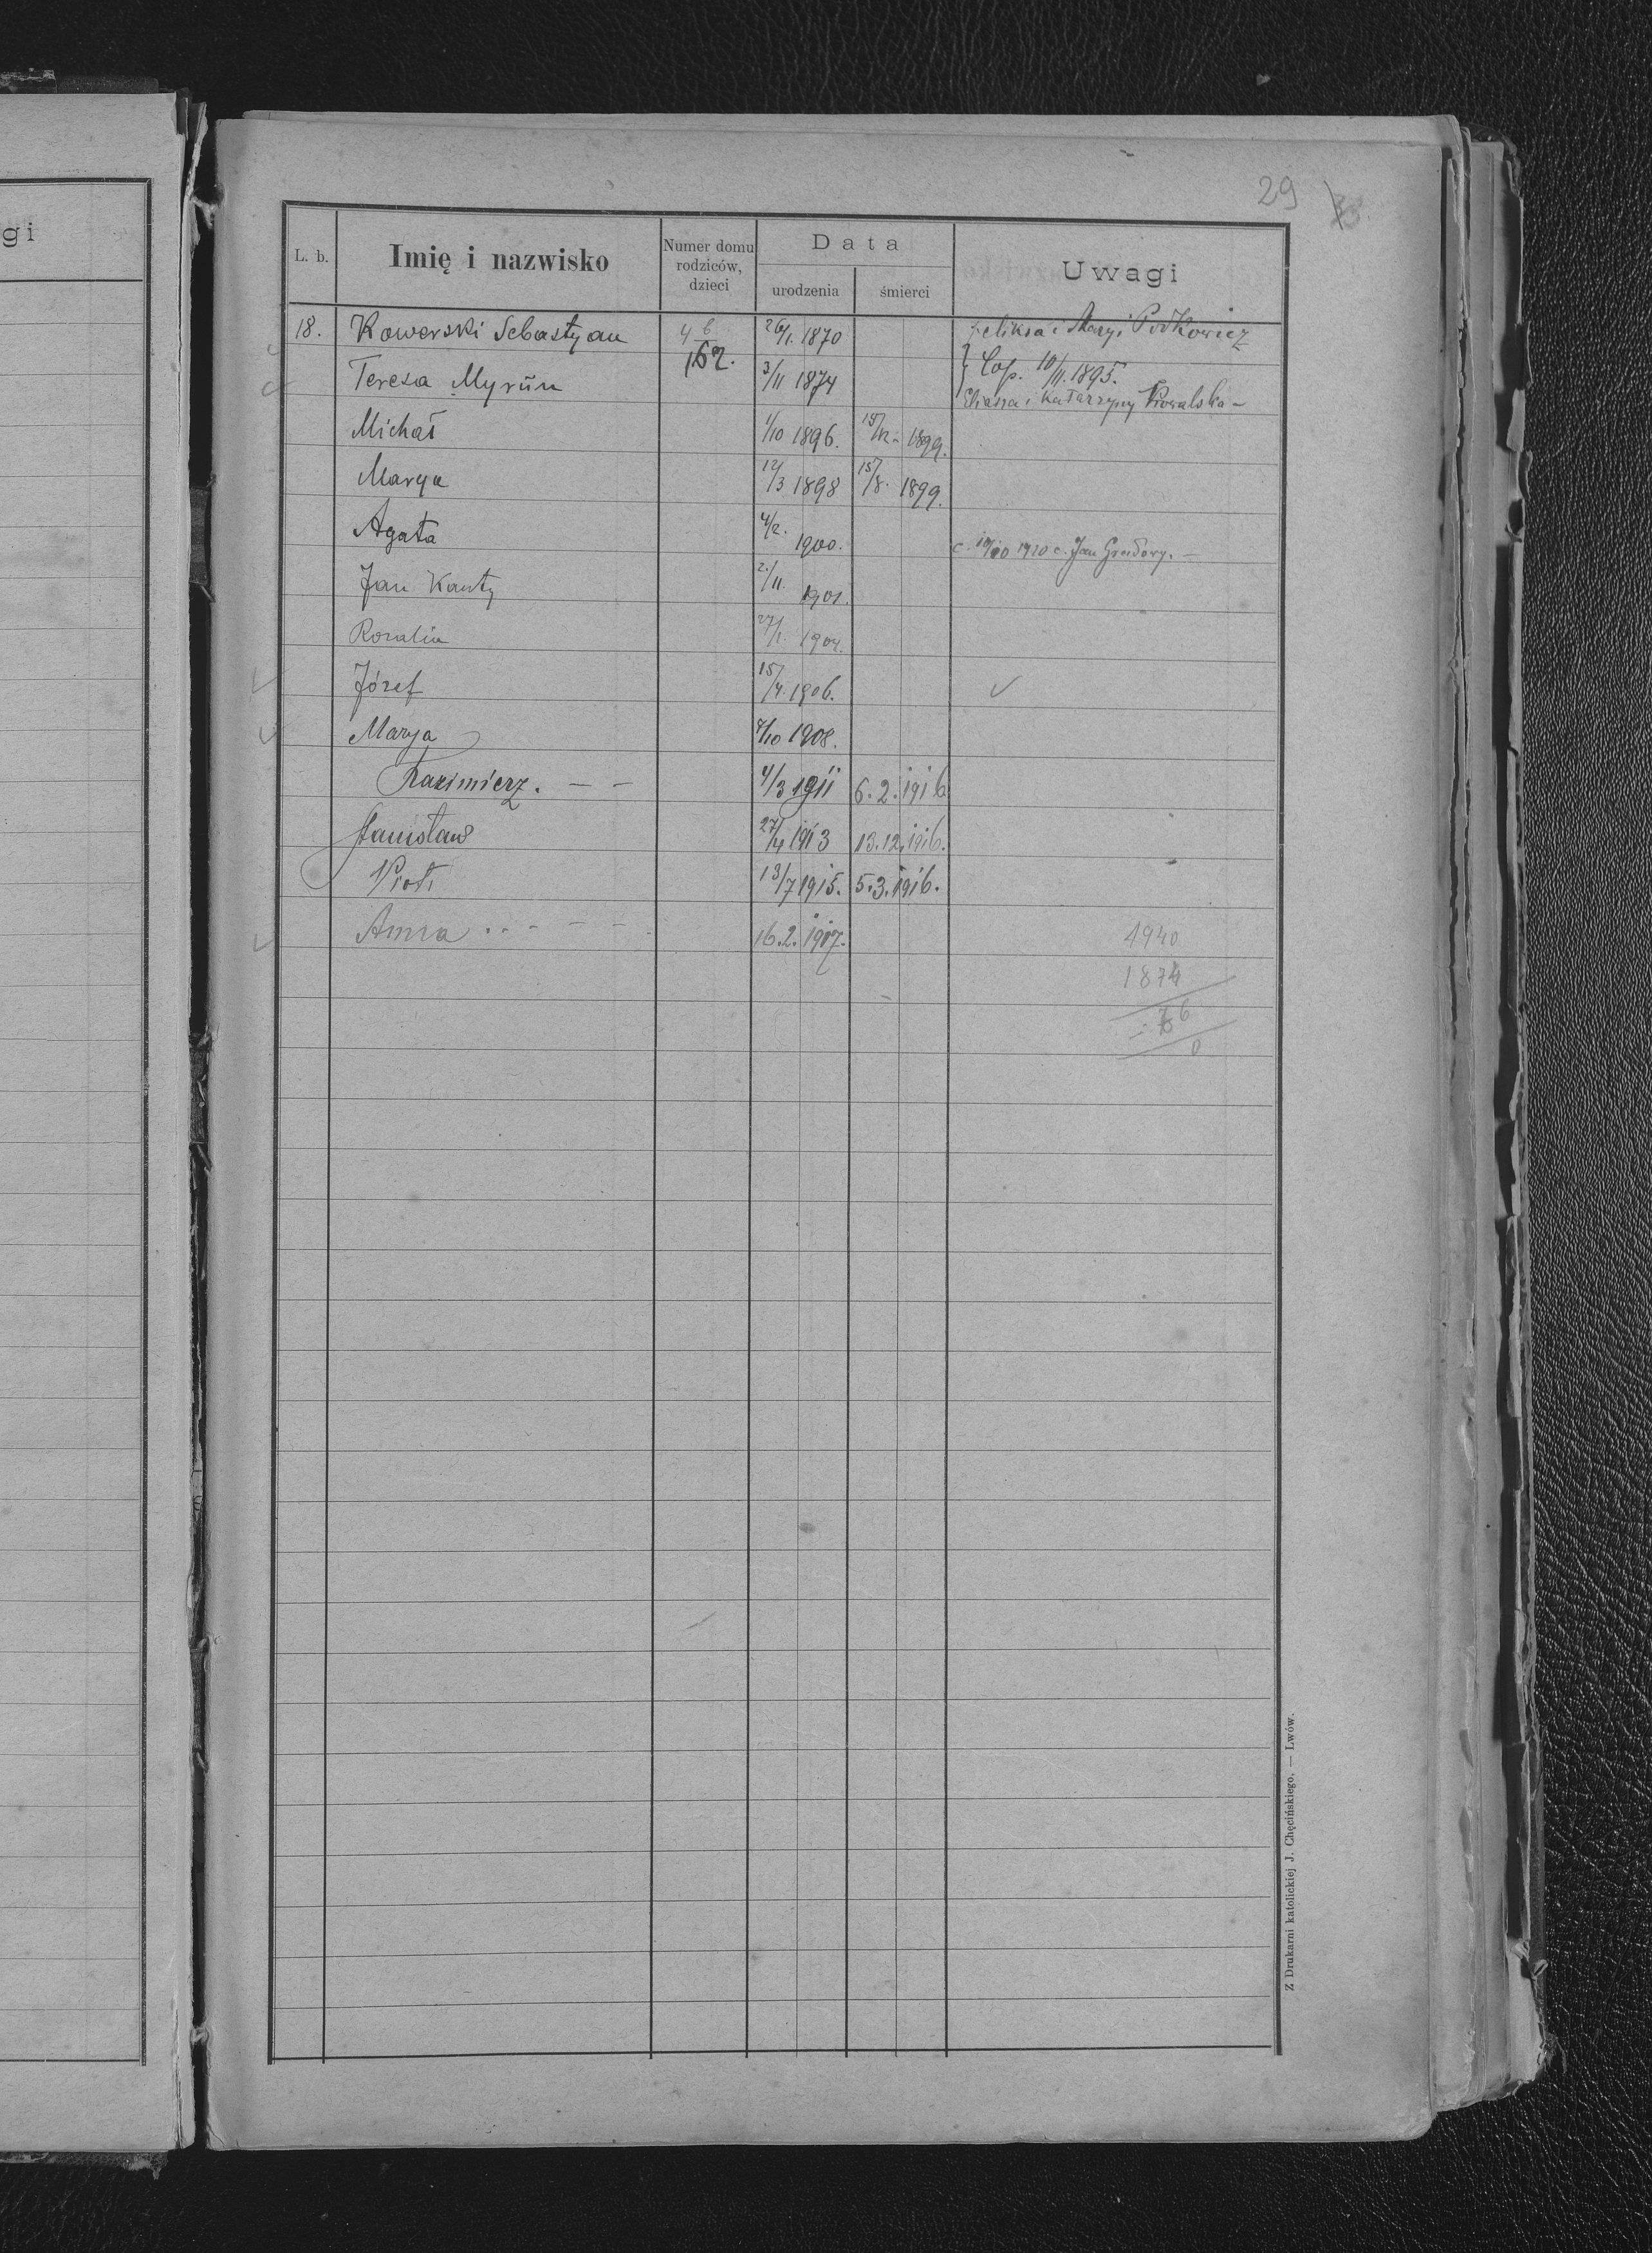 gi
29
L. b.
Imię i nazwisko
Numer domu rodziców, dzieci
Data
urodzenia
śmierci
Uwagi
18. Kowerski Sebastyan 4 b 26/1. 1870 Feliksa i Maryi Podkowicz
162.
Teresa Myrun 3/11 1874 } Cop. 10/11. 1895.
Eliasza i Katarzyny Kowalska -
Michał 1/10 1896. 1899.
Marya 12/3 1898 15/8. 1899.
Agata 4/2. 1900. 1920 c. Jan
Jan Kanty 2/11. 1901.
Rozalia 27/1. 1904.
Józef 15/4. 1906. ✓
Marya 8/10 1908.
Kazimierz. — — 4/3 1911 6. 2. 1916
Stanisław 27/4 1913 13. 12. 1916.
Piotr 13/7 1915. 5. 3. 1916.
Anna 16. 2. 1917.
1940
1874
Z Drukarni katolickiej J. Chęcińskiego. — Lwów.